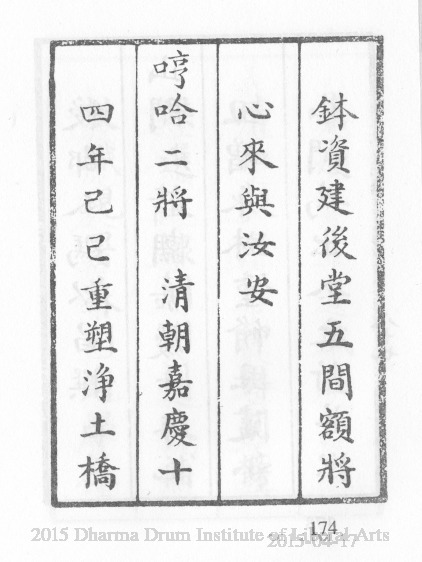 鉢資建後堂五間額將
心來與汝安
哼哈二將 清朝嘉慶十
四年己己重塑浄土橋
174
2015 Dharma Drum Institute of Liberal Arts
2015-04-17